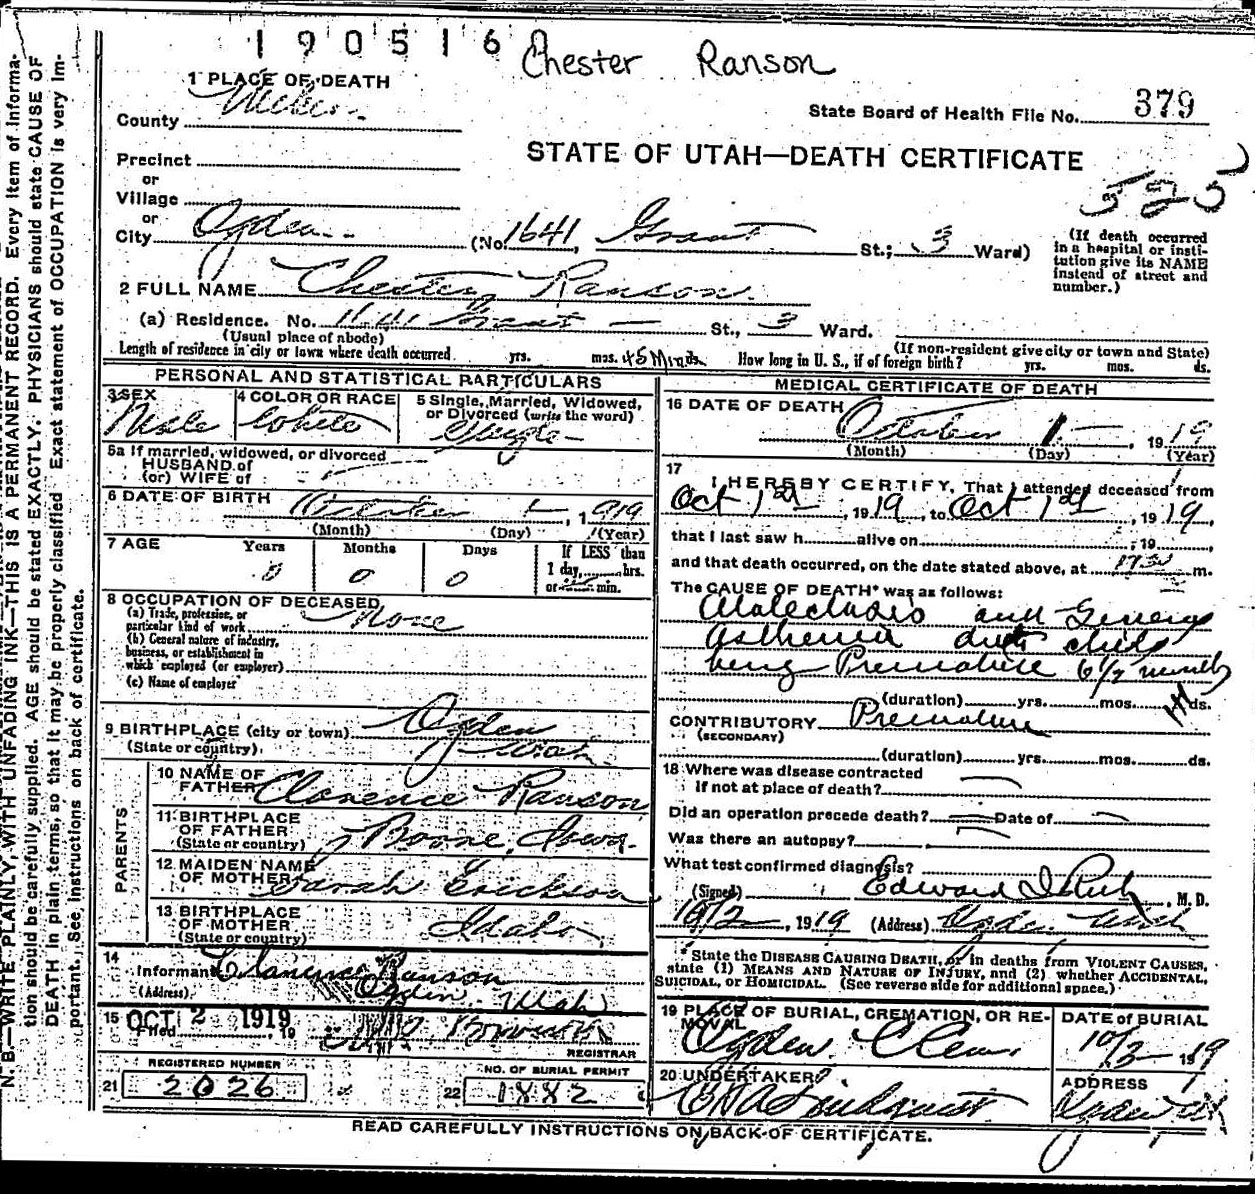 1 9 0 5 1 6 0
Chester Ranson
1 PLACE OF DEATH
County Weber
State Board of Health File No. 379
STATE OF UTAH—DEATH CERTIFICATE
525
Precinct
or
Village
or
City Ogden (No. 1641, Grant St.; 3 Ward)
(If death occurred in a hospital or institution give its NAME instead of street and number.)
2 FULL NAME Chester Ranson.
(a) Residence. No. 1641 Grant — St., 3 Ward.
(Usual place of abode) (If non-resident give city or town and State)
Length of residence in city or town where death occurred yrs. mos. 45 Min ds. How long in U. S., if of foreign birth? yrs. mos. ds.
PERSONAL AND STATISTICAL PARTICULARS
3 SEX Male
4 COLOR OR RACE White
5 Single, Married, Widowed, or Divorced (write the word) Single
5a If married, widowed, or divorced
HUSBAND of
(or) WIFE of
6 DATE OF BIRTH October 1, 1919
(Month) (Day) (Year)
7 AGE Years 0 Months 0 Days 0 If LESS than
1 day, hrs.
or min.
8 OCCUPATION OF DECEASED
(a) Trade, profession, or
particular kind of work None
(b) General nature of industry,
business, or establishment in
which employed (or employer)
(c) Name of employer
9 BIRTHPLACE (city or town) Ogden
(State or country) Utah
PARENTS
10 NAME OF FATHER Clarence Ranson
11 BIRTHPLACE OF FATHER
(State or country) Boone, Iowa.
12 MAIDEN NAME OF MOTHER Sarah Erickson
13 BIRTHPLACE OF MOTHER
(State or country) Idaho
14 Informant Clarence Ranson
(Address) Ogden, Utah
15 Filed OCT 2 1919, 19
REGISTRAR
REGISTERED NUMBER
21 2026
NO. OF BURIAL PERMIT
22 1882
MEDICAL CERTIFICATE OF DEATH
16 DATE OF DEATH October 1 — , 1919
(Month) (Day) (Year)
17 I HEREBY CERTIFY, That I attended deceased from
Oct 1st, 1919, to Oct 1st, 1919,
that I last saw h alive on , 19 ,
and that death occurred, on the date stated above, at m.
The CAUSE OF DEATH* was as follows:
Atalectasis and General
Asthenia due to child
being Premature 6 1/2 months
(duration) yrs. mos. ds.
CONTRIBUTORY Premature
(SECONDARY)
(duration) yrs. mos. ds.
18 Where was disease contracted
if not at place of death?
Did an operation precede death? Date of
Was there an autopsy?
What test confirmed diagnosis?
(Signed) Edward I Rich, M. D.
10/2, 1919 (Address) Ogden Utah
* State the DISEASE CAUSING DEATH, or in deaths from VIOLENT CAUSES,
state (1) MEANS AND NATURE OF INJURY, and (2) whether ACCIDENTAL,
SUICIDAL, or HOMICIDAL. (See reverse side for additional space.)
19 PLACE OF BURIAL, CREMATION, OR REMOVAL Ogden Cem.
DATE of BURIAL 10/2 1919
20 UNDERTAKER Lindquist
ADDRESS Ogden, Ut
READ CAREFULLY INSTRUCTIONS ON BACK OF CERTIFICATE.
N. B.—WRITE PLAINLY, WITH UNFADING INK—THIS IS A PERMANENT RECORD. Every item of Informa-
tion should be carefully supplied. AGE should be stated EXACTLY. PHYSICIANS should state CAUSE OF
DEATH in plain terms, so that it may be properly classified. Exact statement of OCCUPATION is very im-
portant. See instructions on back of certificate.